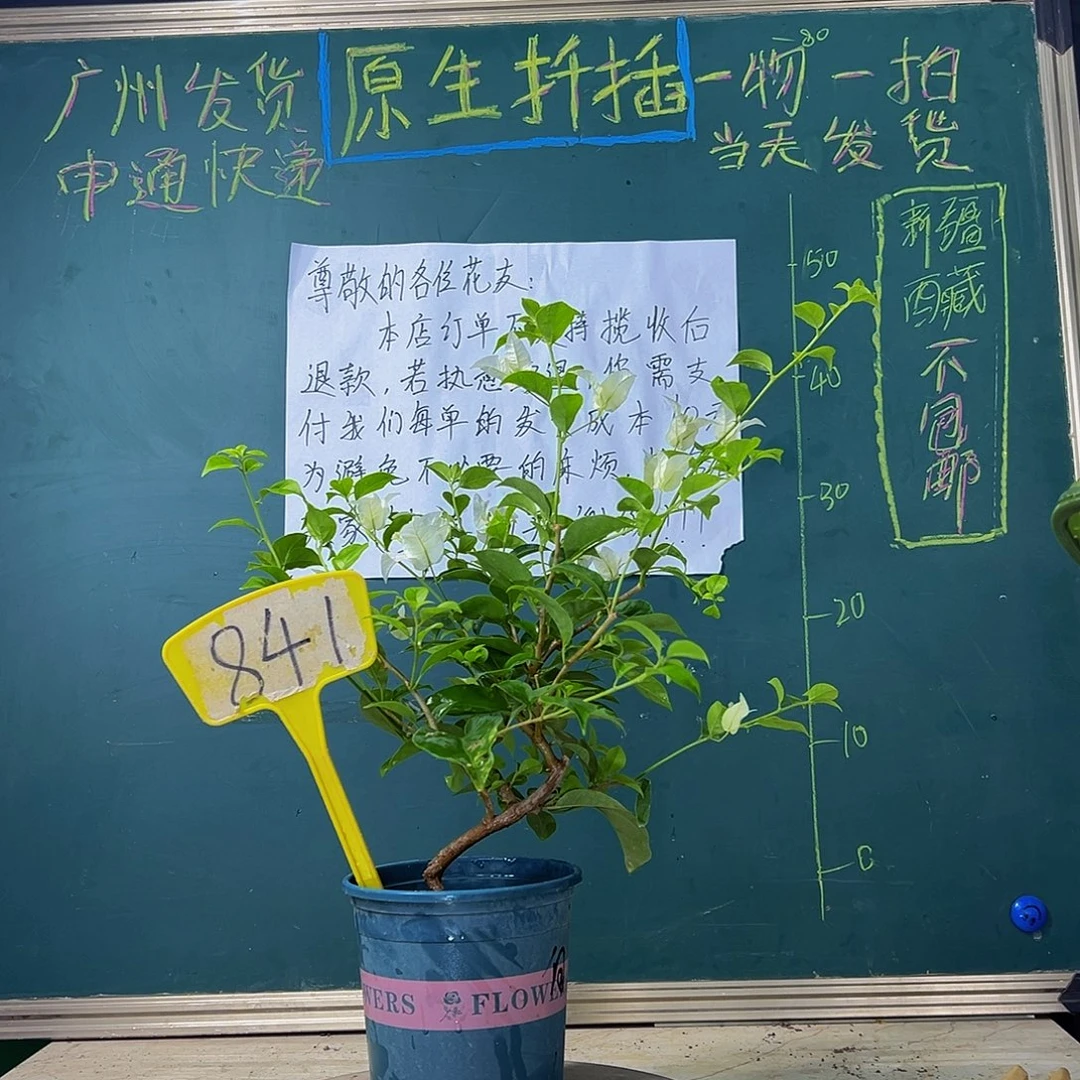 广州发货
申通快递
原生扦插
一物一拍
80
当天发货
新疆
西藏
不
包
邮
尊敬的各位花友:
本店订单不 持揽收后
退款,若执意 退,你需支
付我们每单的发 成本
为避免不必要的麻烦
家
50
40
30
20
10
0
841
WERS FLOWE